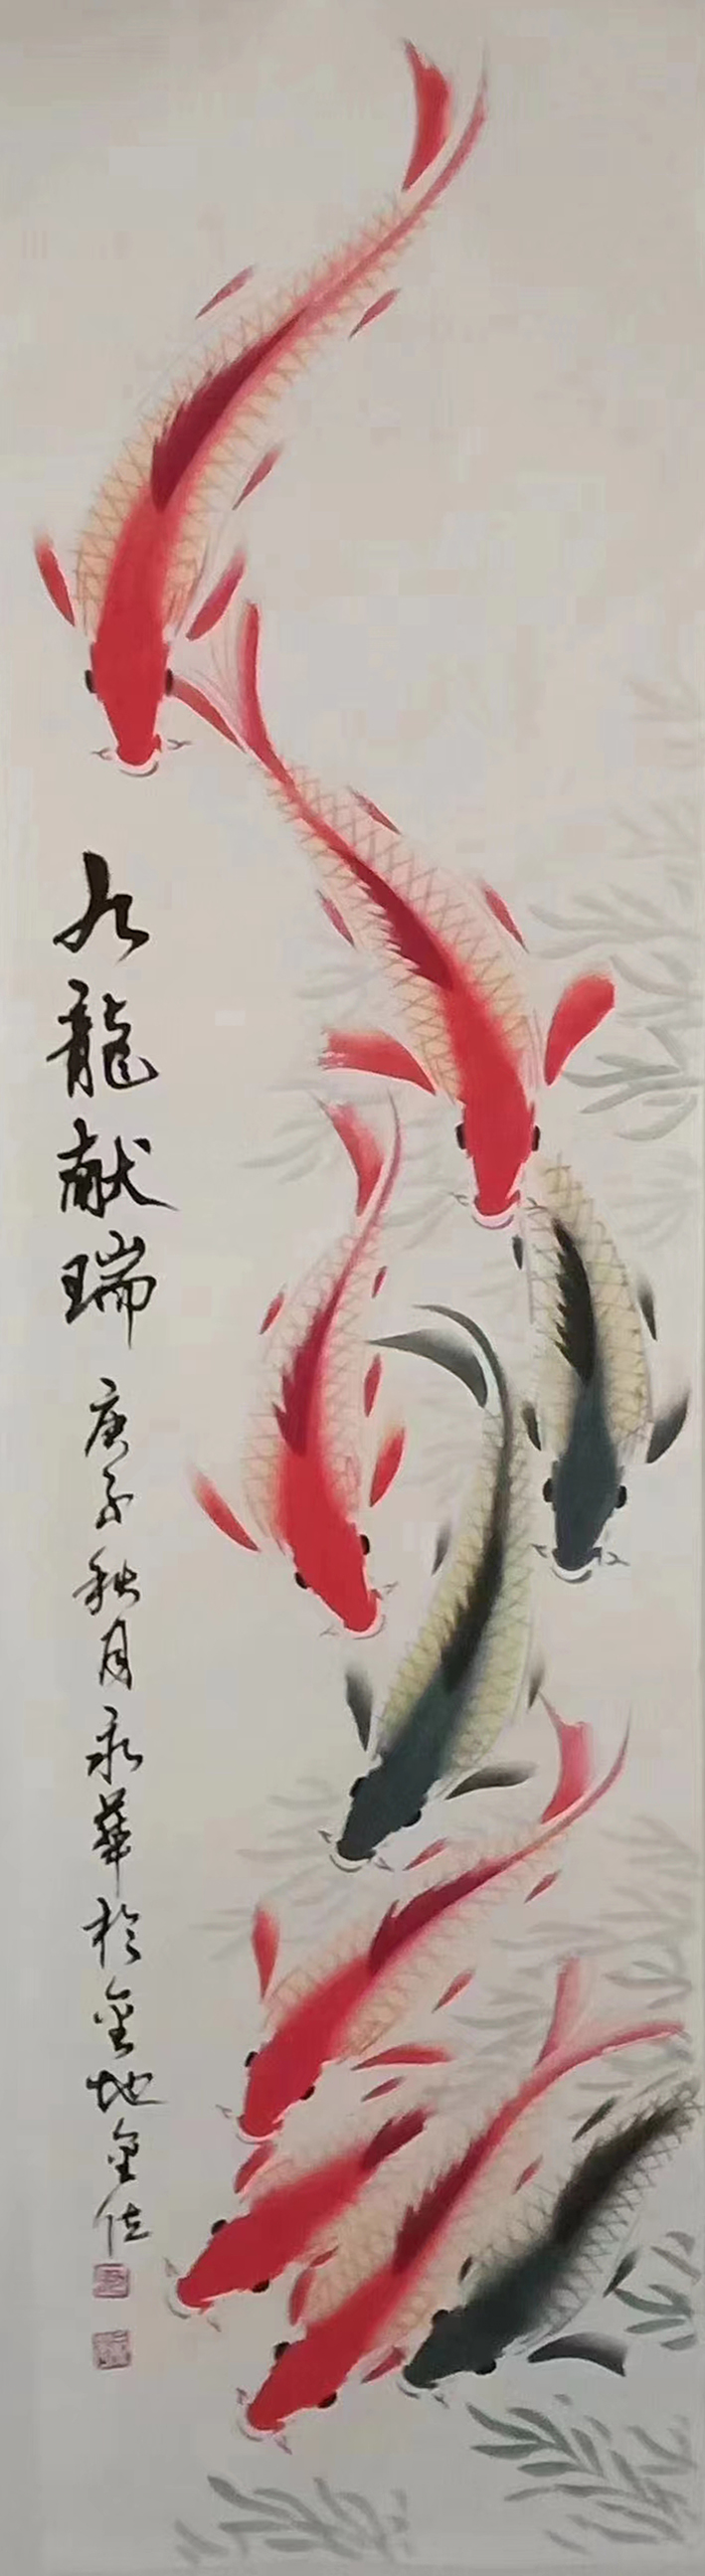 九龍献瑞
庚子秋月永華於金地金